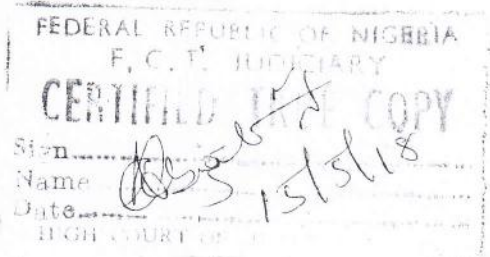 FEDERAL REPUBLIC OF NIGERIA
F. C. T. JUDICIARY
CERTIFIED TRUE COPY
Sign
Name
Date 15/5/18
HIGH COURT OF